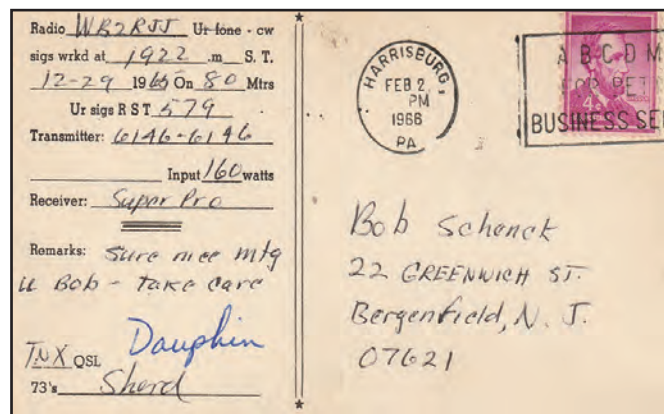 Radio WB2RJJ Ur fone - cw
sigs wrkd at 1922 .m S. T.
12-29 1965 On 80 Mtrs
Ur sigs R S T 579
Transmitter: 6146-6146
Input 160 watts
Receiver: Super Pro
Remarks: Sure nice mtg
u Bob - take care
TNX QSL Dauphin
73's Sherd
HARRISBURG,
FEB 2
PM
1966
PA
A B C D M
FOR BET
BUSINESS SE
4¢
Bob Schenck
22 GREENWICH ST.
Bergenfield, N. J.
07621